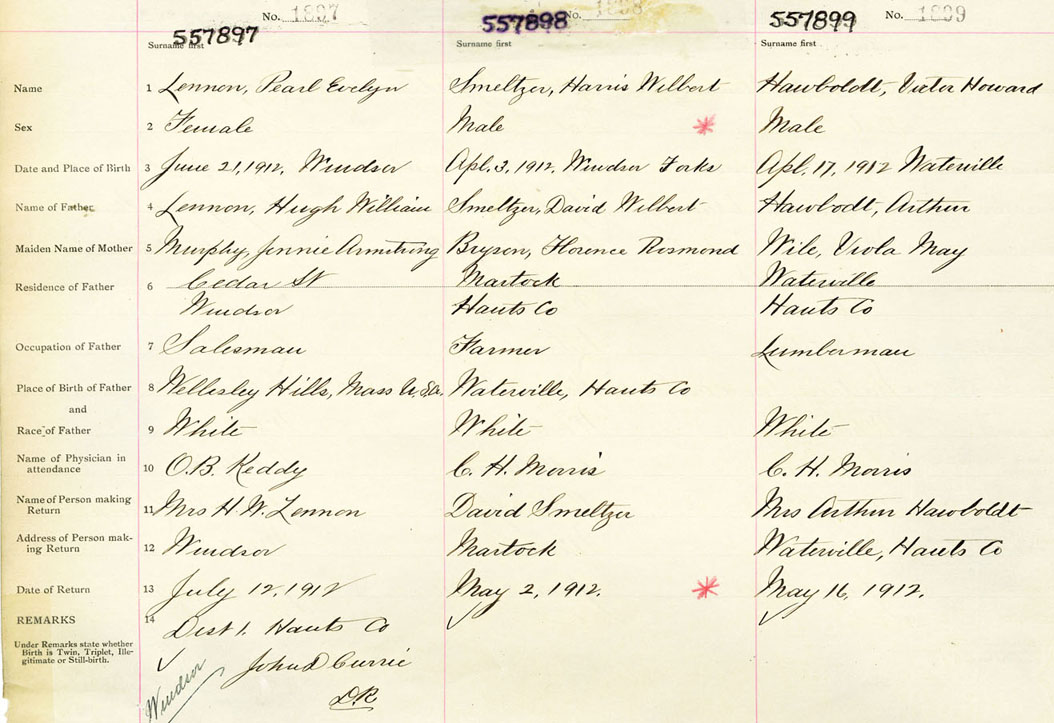 No. 1897 No. 1898 No. 1899
557897 557898 557899
Surname first Surname first Surname first
Name 1 Lennon, Pearl Evelyn Smeltzer, Harris Wilbert Hawboldt, Victor Howard
Sex 2 Female Male Male
Date and Place of Birth 3 June 21, 1912, Windsor Apl. 3, 1912, Windsor Forks Apl. 17, 1912 Waterville
Name of Father 4 Lennon, Hugh William Smeltzer, David Wilbert Hawbodt, Arthur
Maiden Name of Mother 5 Murphy, Jennie Armstrong Bryson, Florence Rosmond Wile, Viola May
Residence of Father 6 Cedar St Martock Waterville
Windsor Hants Co Hants Co
Occupation of Father 7 Salesman Farmer Lumberman
Place of Birth of Father 8 Wellesley Hills, Mass U.S.A. Waterville, Hants Co
and
Race of Father 9 White White White
Name of Physician in
attendance 10 O.B. Keddy C. H. Morris C. H. Morris
Name of Person making
Return 11 Mrs H. W. Lennon David Smeltzer Mrs Arthur Hawboldt
Address of Person mak-
ing Return 12 Windsor Martock Waterville, Hants Co
Date of Return 13 July 12, 1912 May 2, 1912. May 16, 1912.
REMARKS 14 Dist 1. Hants Co
Under Remarks state whether
Birth is Twin, Triplet, Ille-
gitimate or Still-birth.
John D Currie
Windsor
D.R.